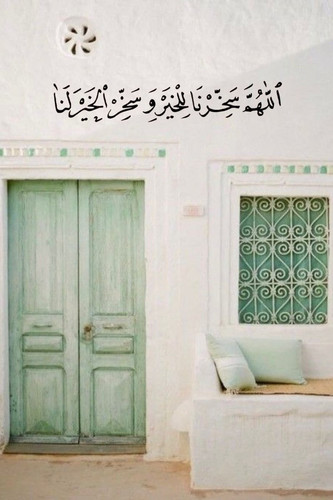 ٱللَّٰهُمَّ سَخِّرْنَا لِلْخَيْرِ وَ سَخِّرْ ٱلْخَيْرَ لَنَا